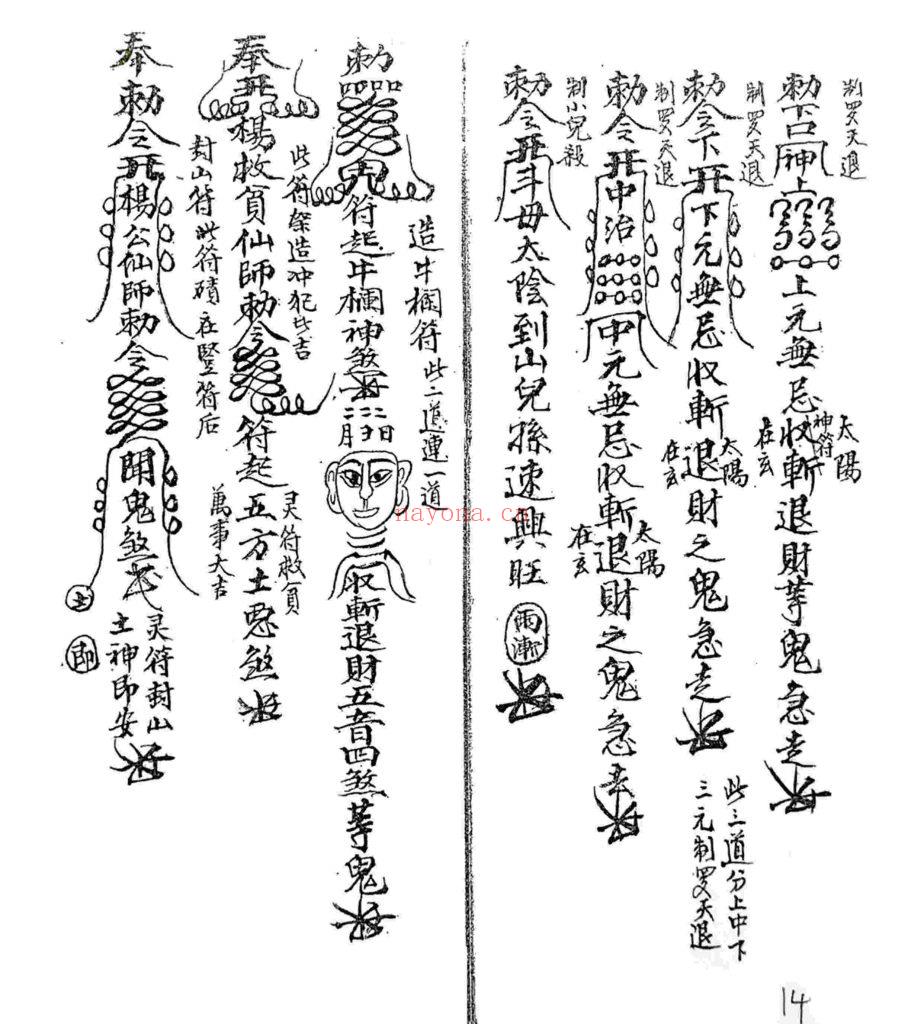 制罗天退
勅下口神上
上元無忌收斬退財等鬼急走
太陽
神符
在玄
制罗天退
勅令下
下元無忌收斬退財之鬼急走
太陽
在玄
此三道分上中下
三元制罗天退
制罗天退
勅令
中治
中元無忌收斬退財之鬼急走
太陽
在玄
制小兒殺
勅令
斗母太陰到山兒孫速興旺
雨漸
造牛欄符此二道連一道
勅
符起牛欄神煞
月 日
收斬退財五音四煞等鬼
此符祭造冲犯此吉
奉
楊救貧仙師勅令
符起五方土惡煞
灵符救貧
萬事大吉
封山符此符磧在竪符后
奉勅令
楊公仙師勅令
鬼煞
灵符封山
土神即安
土
即
nayona.cn
14